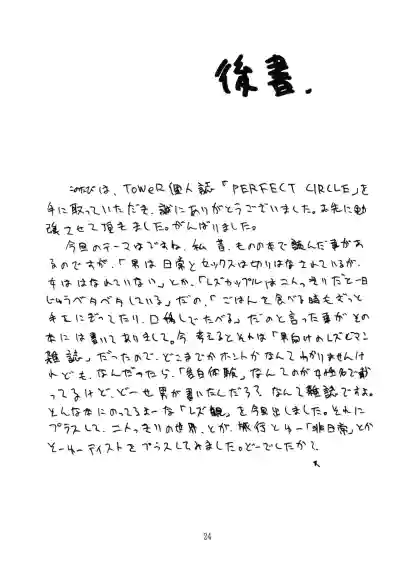 後書.
このたびは、TOWER個人誌「PERFECT CIRCLE」を
手に取っていただき、誠にありがとうございました。お先に勉
強させて頂きました。がんばりました。
今回のテーマはですね、私、昔、ものの本で読んだ事があ
るのですが、「男は日常とセックスは切りはなされているが、
女ははなれていない」とか、「レズカップルは二人っきりだと一日
じゅうベタベタしている」だの、「ごはんを食べる時もずっと
手をにぎってたり、口移しでたべる」だのと言った事がその
本には書いてありまして。今考えるとそれは「男向けのレズビアン
雑誌」だったので、どこまでがホントかなんてわかりませんけ
れども、なんだったら、「告白体験」なんてのが女性名で載
ってるけど、どーせ男が書いたんだろ?なんて雑誌ですよ。
そんな本にのってるよーな「レズ観」を今回出しました。それに
プラスして、二人っきりの世界、とか、旅行とゆー「非日常」とか
そーゆーテイストをプラスしてみました。どーでしたか?
24